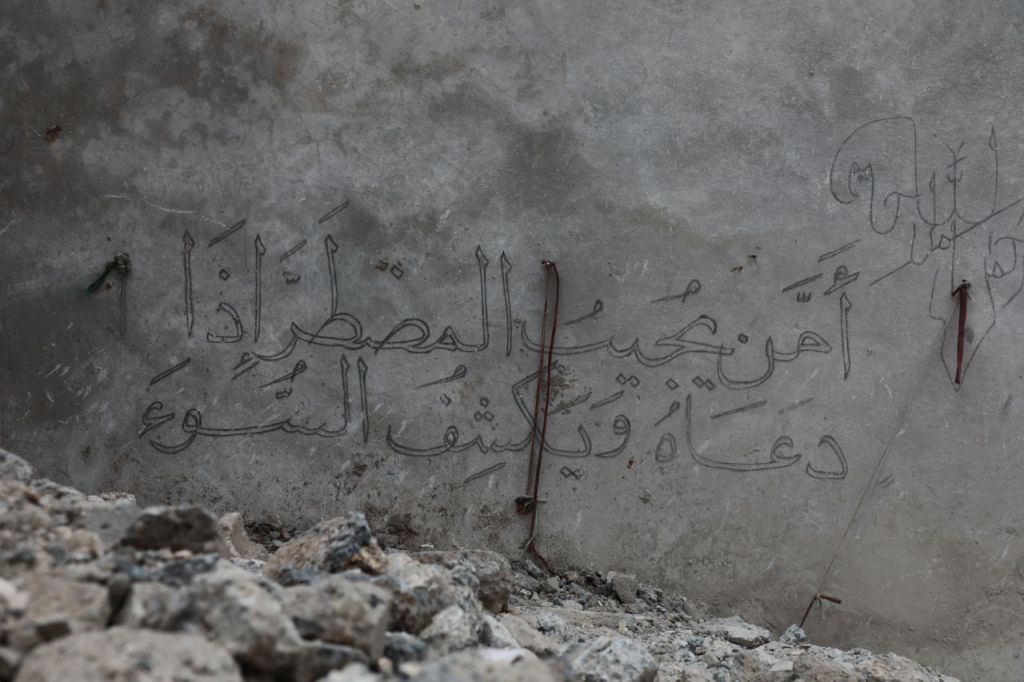 أَمَّن يُجِيبُ الْمُضْطَرَّ إِذَا
دَعَاهُ وَيَكْشِفُ السُّوءَ